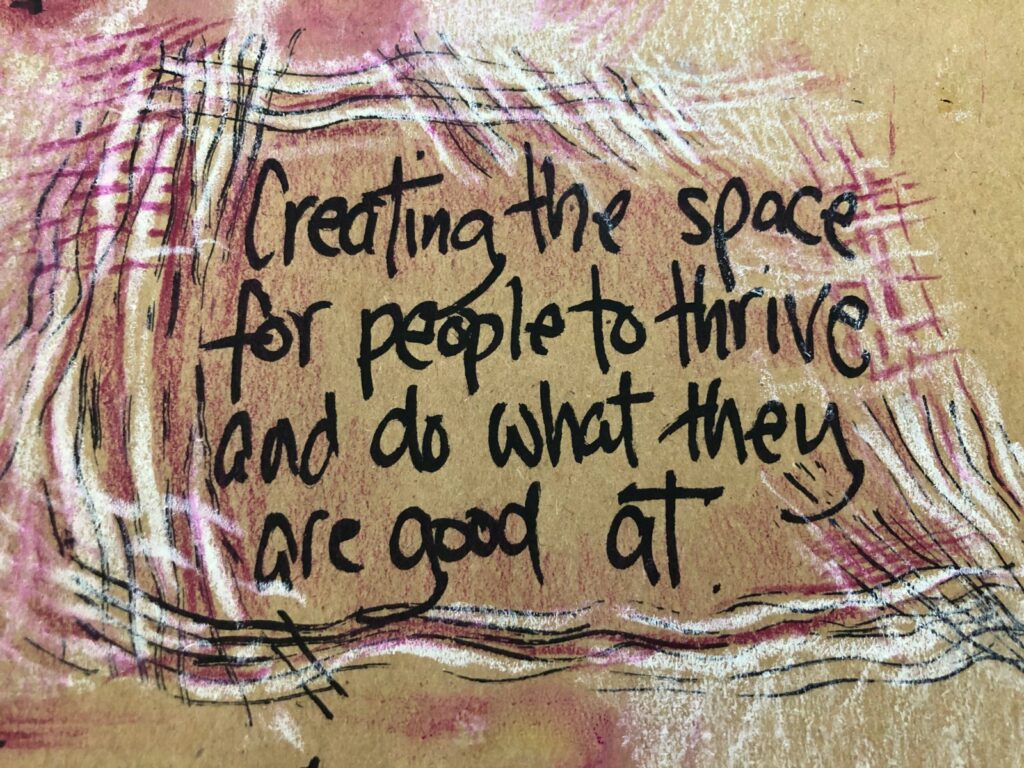 Creating the space
for people to thrive
and do what they
are good at.